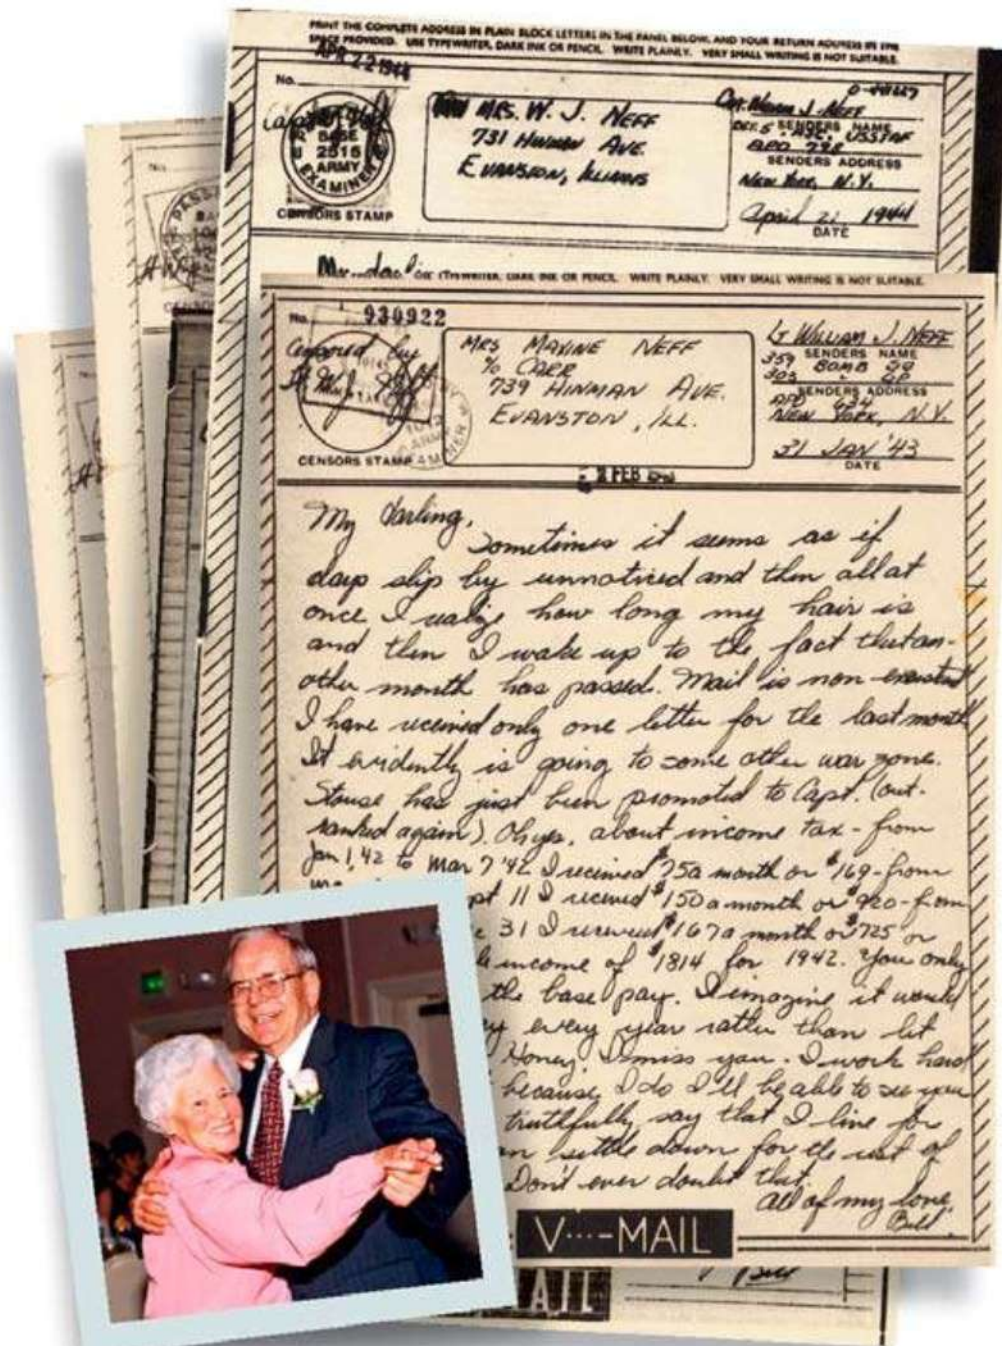 PRINT THE COMPLETE ADDRESS IN PLAIN BLOCK LETTERS IN THE PANEL BELOW, AND YOUR RETURN ADDRESS IN THE
SPACE PROVIDED. USE TYPEWRITER, DARK INK OR PENCIL. WRITE PLAINLY. VERY SMALL WRITING IS NOT SUITABLE.
APR 22 1944
No.
MRS. W. J. NEFF
731 HINMAN AVE.
EVANSTON, ILLINOIS
BASE
2515
ARMY
EXAMINER
CENSORS STAMP
CPT. William J. NEFF
SENDERS NAME
USSTAF
SENDERS ADDRESS
New York, N.Y.
April 21, 1944
DATE
OR TYPEWRITER, DARK INK OR PENCIL. WRITE PLAINLY. VERY SMALL WRITING IS NOT SUITABLE.
No. 930922
Censored by
CENSORS STAMP
MRS MAXINE NEFF
% CARR
739 HINMAN AVE.
EVANSTON, ILL.
LT WILLIAM J. NEFF
SENDERS NAME
359 BOMB SQ
303 " GP
SENDERS ADDRESS
APO 634
NEW YORK, N.Y.
31 JAN '43
DATE
My darling,
Sometimes it seems as if
days slip by unnoticed and then all at
once I realize how long my hair is
and then I wake up to the fact that an-
other month has passed. Mail is non-existent
I have received only one letter for the last month
It evidently is going to some other war zone.
Stouse has just been promoted to Capt. (out-
ranked again). Oh yes, about income tax - from
Jan 1, 42 to Mar 7 '42 I received $75 a month or $169 - from
pt 11 I received $150 a month or $920 - from
31 I received $167 a month or $725 or
income of $1814 for 1942. You only
the base pay. I imagine it would
every year rather than let
Honey, I miss you. I work hard
because I do I'll be able to see you
truthfully say that I live for
settle down for the rest of
Don't ever doubt that.
All of my love,
Bill
V···-MAIL
Bill
AIL